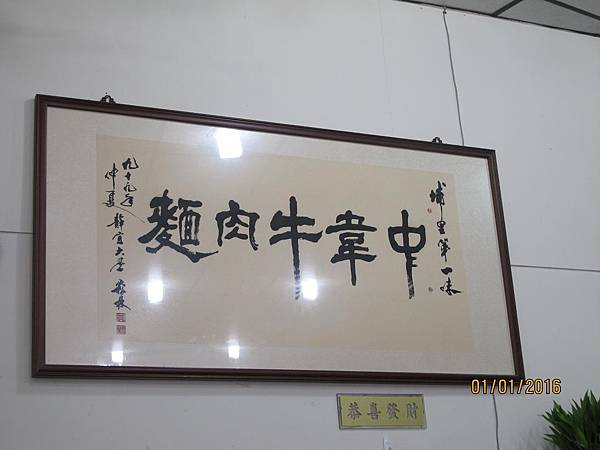 埔里第一味
中韋牛肉麵
九十九年
仲夏靜宜大
恭喜發財
01/01/2016